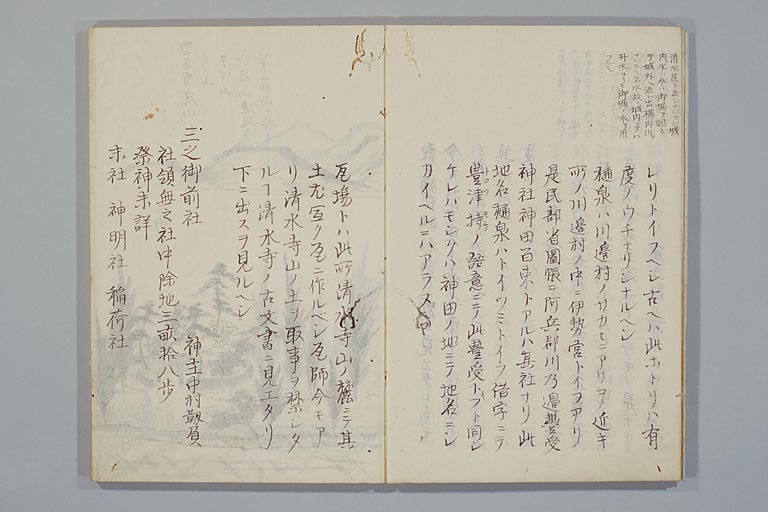 清水尻ト云レシコト城
内水ハ今ハ御堀ヲ廻リ
テ城外ヘ流レ出構内川
名水故ニ城内ニテハ
井水ヨリ御堀ノ水ヲ用
レリトイフヘシ古ヘハ此ホトリハ有
度ノウチナリシナルヘシ
樋泉ハ川邊村ノサカヒニアリテ近キ
所ノ川邊村ノ中ニ伊勢宮トイフアリ
是民部省圖帳ニ阿兵郡川乃邊豊受
神社神田百束トアルハ其社ナリ此
地名樋泉ハトイツミトイフ借字ニテ
豊津持ノ語意ニテ此豊受トフト同シ
ケレハモシクハ神田ノ地ニテ地名ニシ
カイヘルニハアラヌヤ
瓦場トハ此所清水寺山ノ麓ニテ其
土尤宜ク瓦ニ作ルベシ瓦師今モア
リ清水寺山ノ土ヲ取事ヲ禁シタ
ルヿ清水寺ノ古文書ニ見エタリ
下ニ出スヲ見ルヘシ
三之御前社 神主中村靱負
社領無之社中除地三畝拾八歩
祭神未詳
末社 神明社 稲荷社